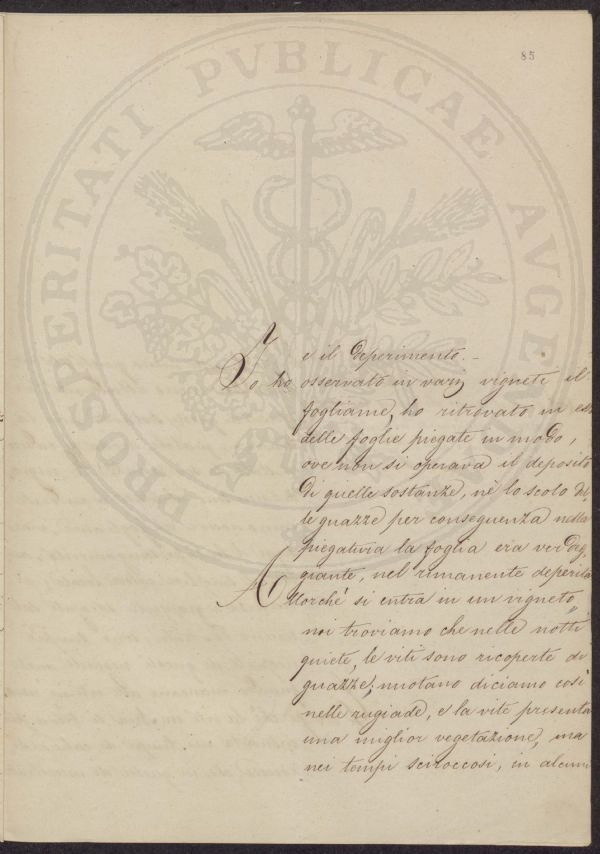 85
PROSPERITATI PVBLICAE AVGE
e il deperimento. –
Io ho osservato in varij vigneti il
fogliame, ho ritrovato in
delle foglie piegate in modo,
ove non si operava il deposito
di quelle sostanze, nè lo scolo del
le guazze per conseguenza nella
piegatura la foglia era verdeg,
giante, nel rimanente deperita
Allorchè si entra in un vigneto
noi troviamo che nelle notti
quiete, le viti sono ricoperte di
guazze, nuotano diciamo così
nelle rugiade, e la vite presenta
una miglior vegetazione, ma
nei tempi sciroccosi, in alcuni